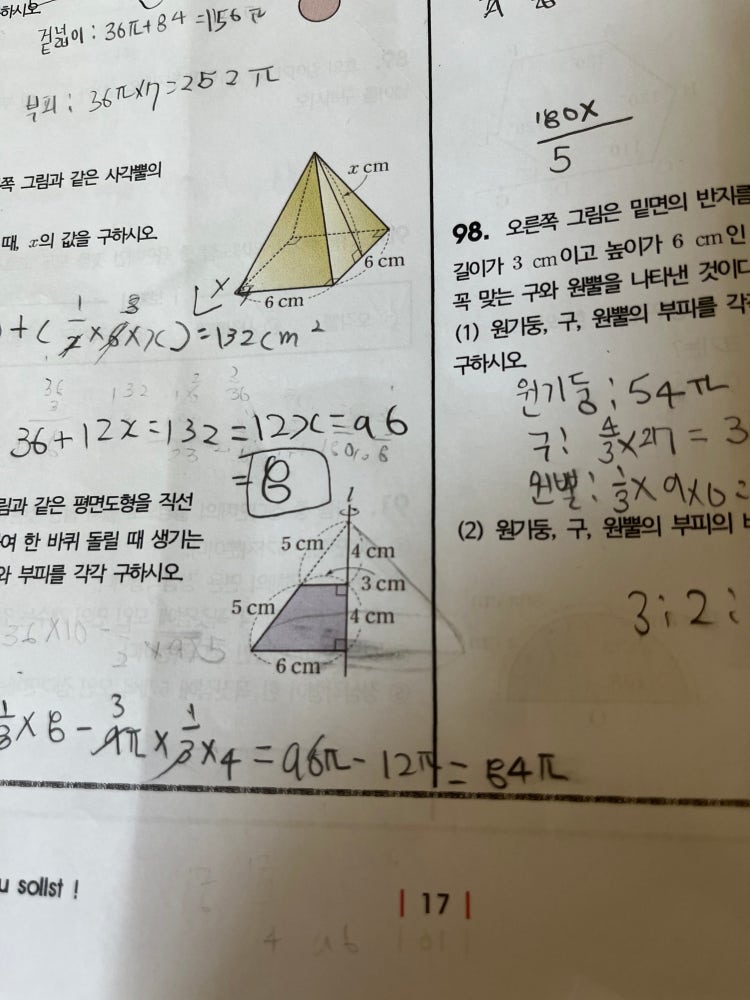 하시오
겉넓이 : 36π+84 =156π
부피 : 36π×7=252π
쪽 그림과 같은 사각뿔의
때, x의 값을 구하시오.
x cm
6 cm
6 cm
+( 1/2×6×x)=132cm²
36+12x=132=12x=96
=8
림과 같은 평면도형을 직선
여 한 바퀴 돌릴 때 생기는
와 부피를 각각 구하시오.
l
5 cm
4 cm
3 cm
5 cm
4 cm
6 cm
1/3×8-9π×1/3×4=96π-12π=84π
u sollst !
| 17 |
180x/5
98. 오른쪽 그림은 밑면의 반지름
길이가 3 cm이고 높이가 6 cm인
꼭 맞는 구와 원뿔을 나타낸 것이다
(1) 원기둥, 구, 원뿔의 부피를 각각
구하시오.
원기둥 : 54π
구 : 4/3×27= 3
원뿔 : 1/3×9×6=
(2) 원기둥, 구, 원뿔의 부피의 비
3:2: